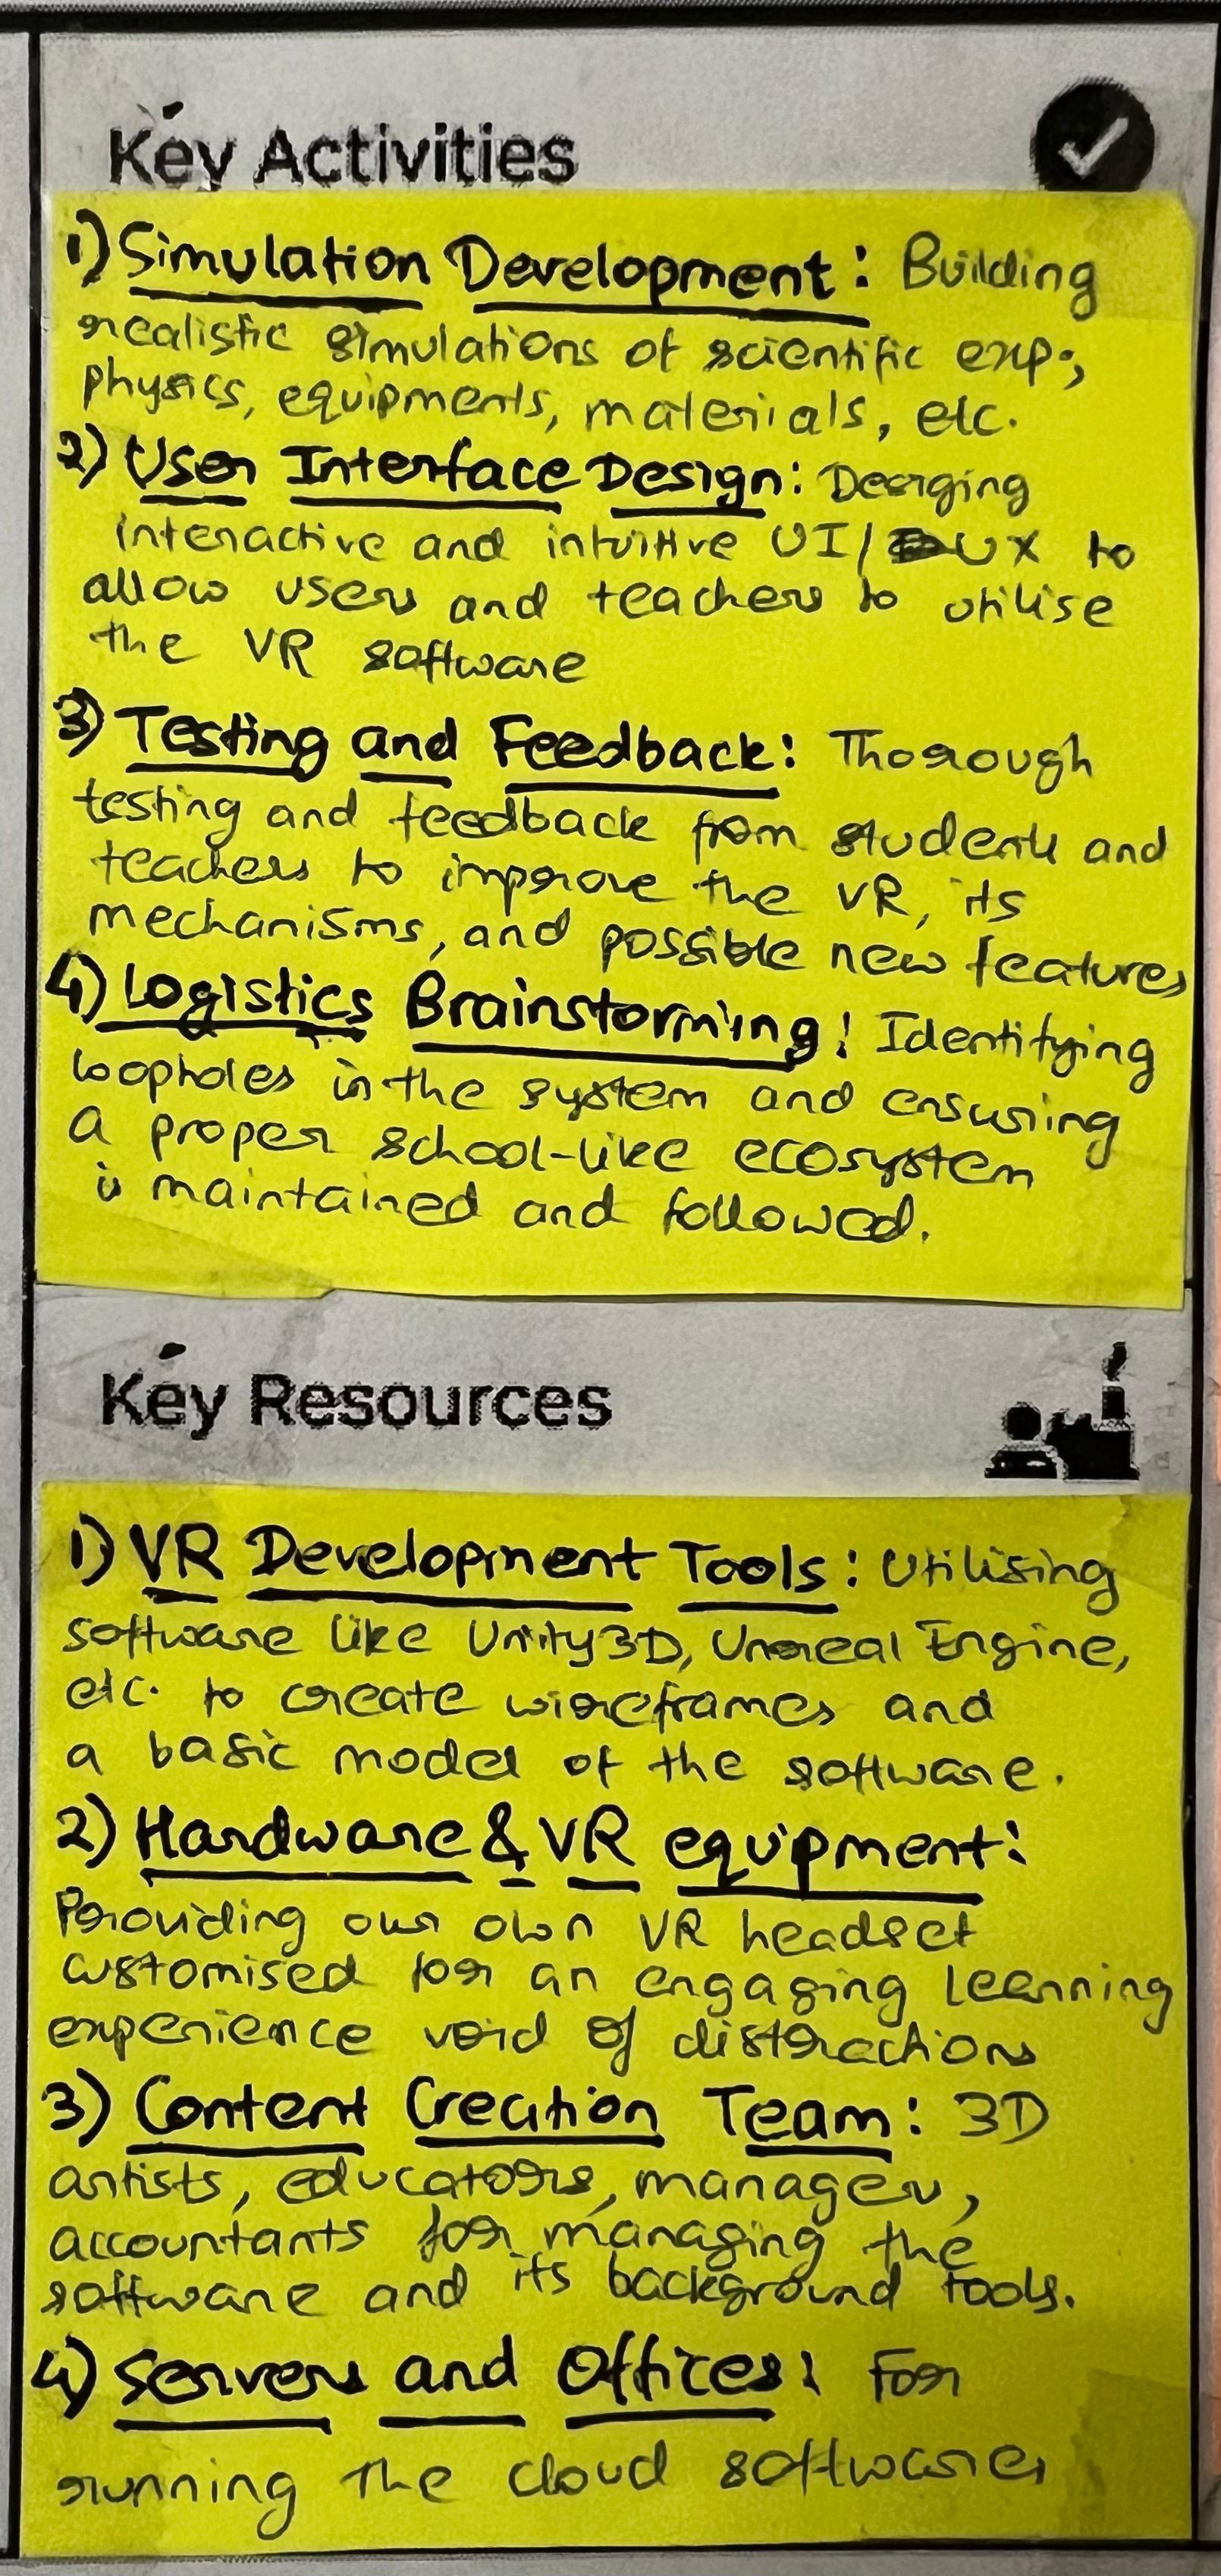 Key Activities
1) Simulation Development: Building
realistic simulations of scientific exp.,
physics, equipments, materials, etc.
2) User Interface Design: Desiging
interactive and intuitive UI/UX to
allow users and teachers to utilise
the VR software
3) Testing and Feedback: Thorough
testing and feedback from students and
teachers to improve the VR, its
mechanisms, and possible new features
4) Logistics Brainstorming: Identifying
loopholes in the system and ensuring
a proper school-like ecosystem
is maintained and followed.
Key Resources
1) VR Development Tools: Utilising
software like Unity3D, Unreal Engine,
etc. to create wireframes and
a basic model of the software.
2) Hardware & VR equipment:
Providing our own VR headset
customised for an engaging learning
experience void of distractions
3) Content Creation Team: 3D
artists, educators, managers,
accountants for managing the
software and its background tools.
4) Servers and Offices: For
running the cloud softwares